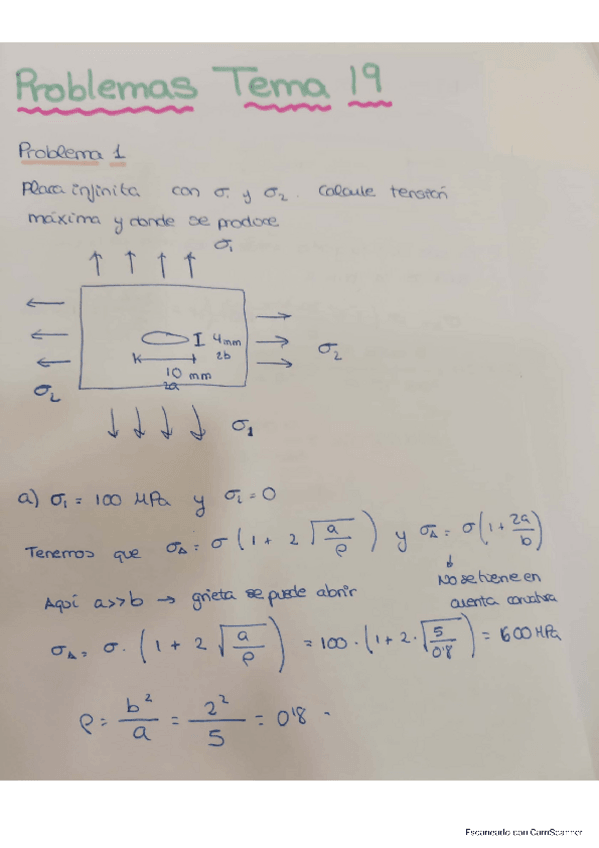 Problemas Tema 19
Problema 1
Placa infinita con σ₁ y σ₂. Calcule tensión
máxima y donde se produce
σ₁
4mm
2b
σ₂
10 mm
2a
σ₂
σ₁
a) σ₁ = 100 MPa y σ₂ = 0
Tenemos que σA = σ (1 + 2 √(a/ρ)) y σA = σ (1 + 2a/b)
No se tiene en
cuenta
Aquí a>>b → grieta se puede abrir
σA = σ · (1 + 2 √(a/ρ)) = 100 · (1 + 2 · √(5/0'8)) = 600 MPa
ρ = b²/a = 2²/5 = 0'8
Escaneado con CamScanner